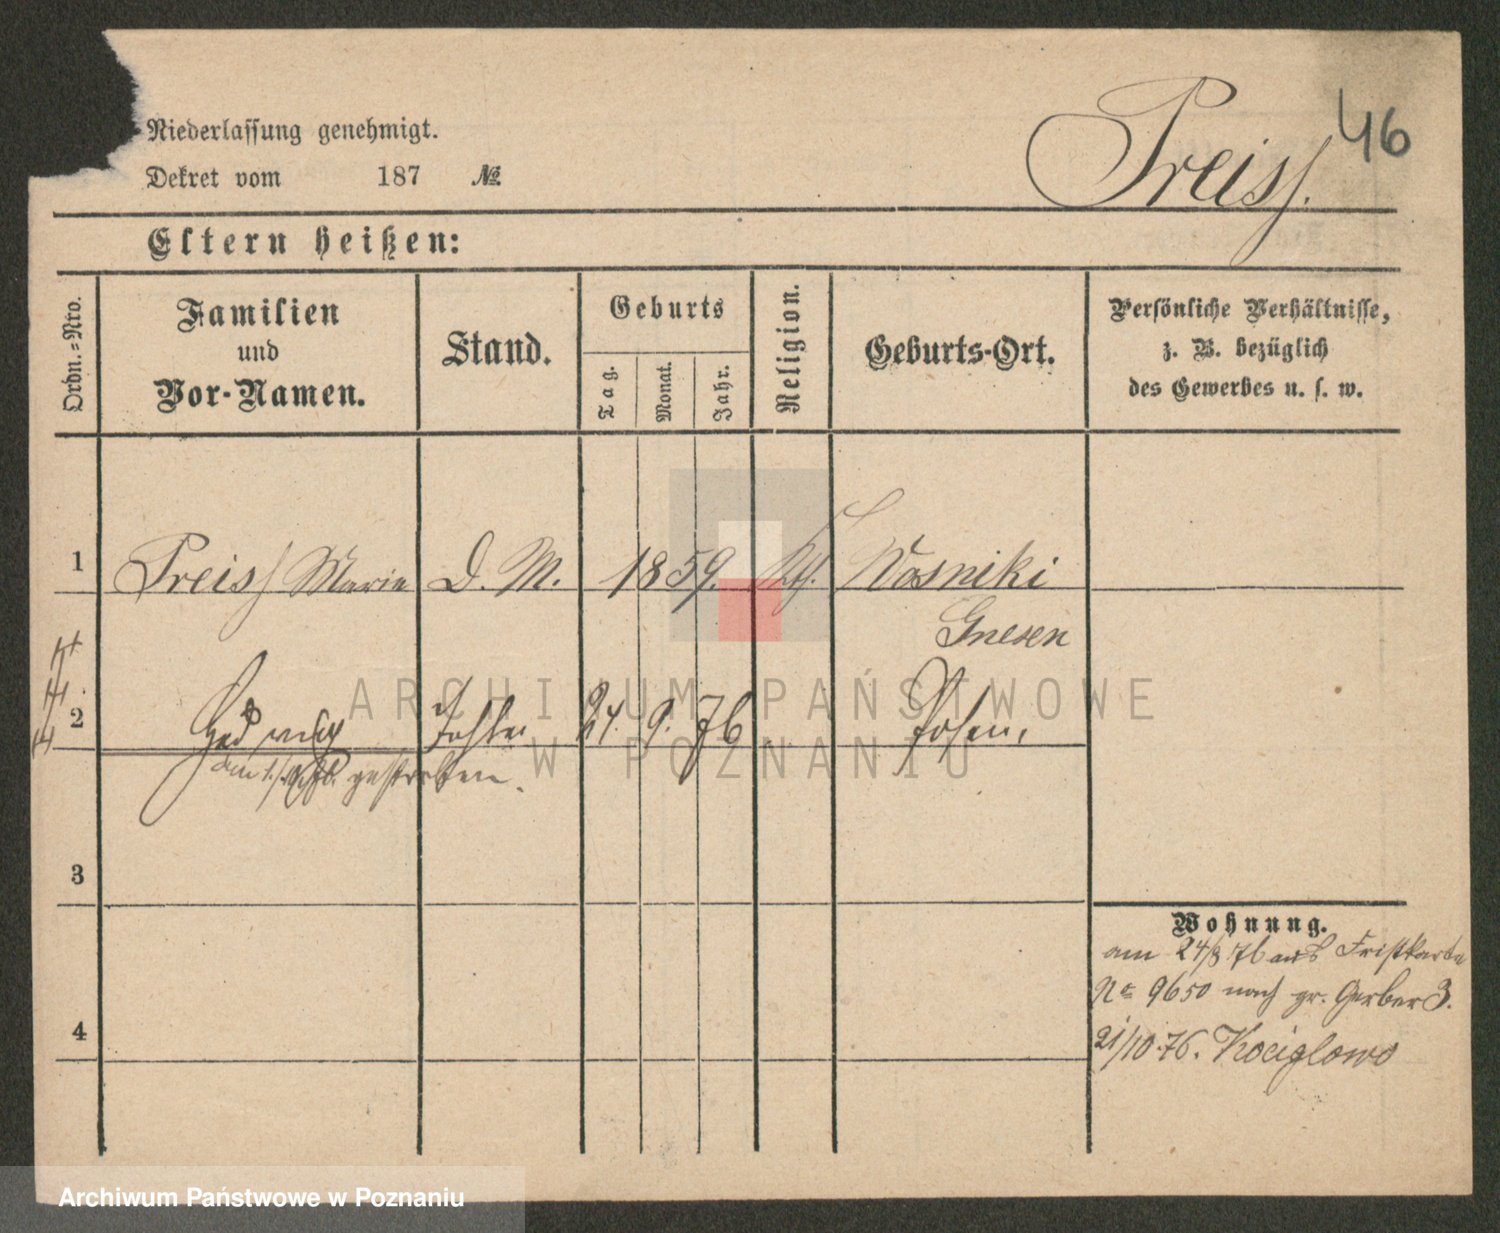 46
Niederlassung genehmigt.
Preiss.
Dekret vom 187 №
Eltern heißen:
Ordn.-Nro.
Familien und Vor-Namen.
Stand.
Geburts
Tag.
Monat.
Jahr.
Religion.
Geburts-Ort.
Persönliche Verhältnisse,
z. B. bezüglich
des Gewerbes u. s. w.
1 Preiss Marie D. M. 1859. kth. Wosniki
Gnesen
2 Hedwig Tochter 24. 9. 76 Posen,
am gestorben.
3
Wohnung.
am 24/8 76 aus Fristkarte
No 9650 nach gr. Gerber 3.
4
21/10.76. Kociglowo
ARCHIWUM PAŃSTWOWE
W POZNANIU
Archiwum Państwowe w Poznaniu